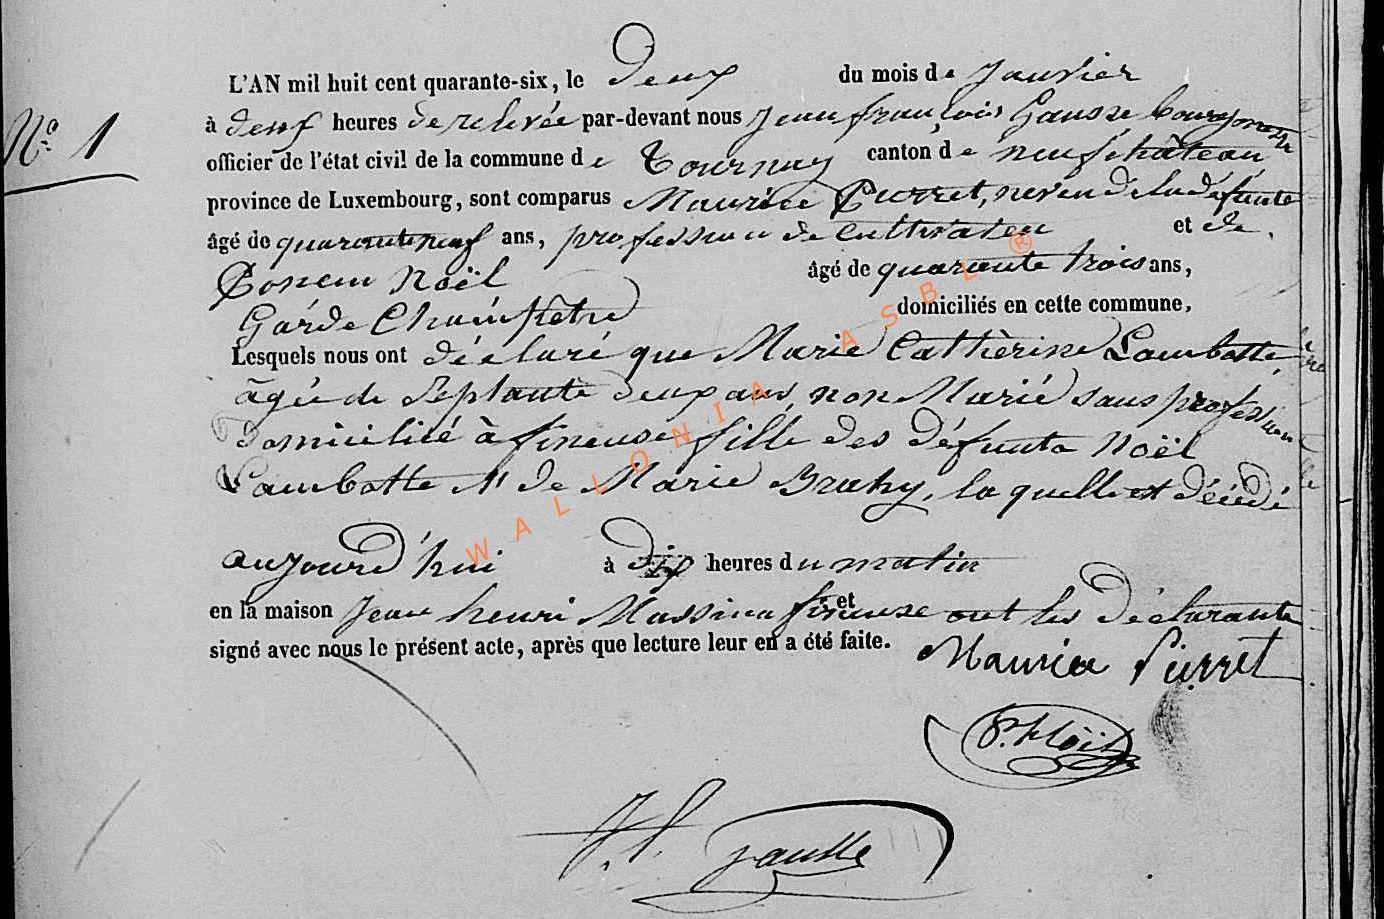 N° 1
L'AN mil huit cent quarante-six, le deux du mois de Janvier
à deux heures de relevée par-devant nous Jean françois Gausse bourgmestre
officier de l'état civil de la commune de Tournay canton de neufchâteau
province de Luxembourg, sont comparus Maurice Pierret, neveu de la défunte
âgé de quaranteneuf ans, profession de cultivateu et de
Poncin Noël âgé de quarante trois ans,
Garde Champêtre domiciliés en cette commune,
Lesquels nous ont déclaré que Marie Catherine Lambotte,
âgée de Septante deux ans, non Marié sans profession
domicilié à fineuse fille des défunts Noël
Lambotte & de Marie Brahy, laquelle est décédé
aujourd'hui à dix heures du matin
en la maison Jean henri Massinon fineuse et ont les déclarants
signé avec nous le présent acte, après que lecture leur en a été faite.
Maurice Pierret
P. Noël
J. f. gausse
WALLONIA ASBL ®